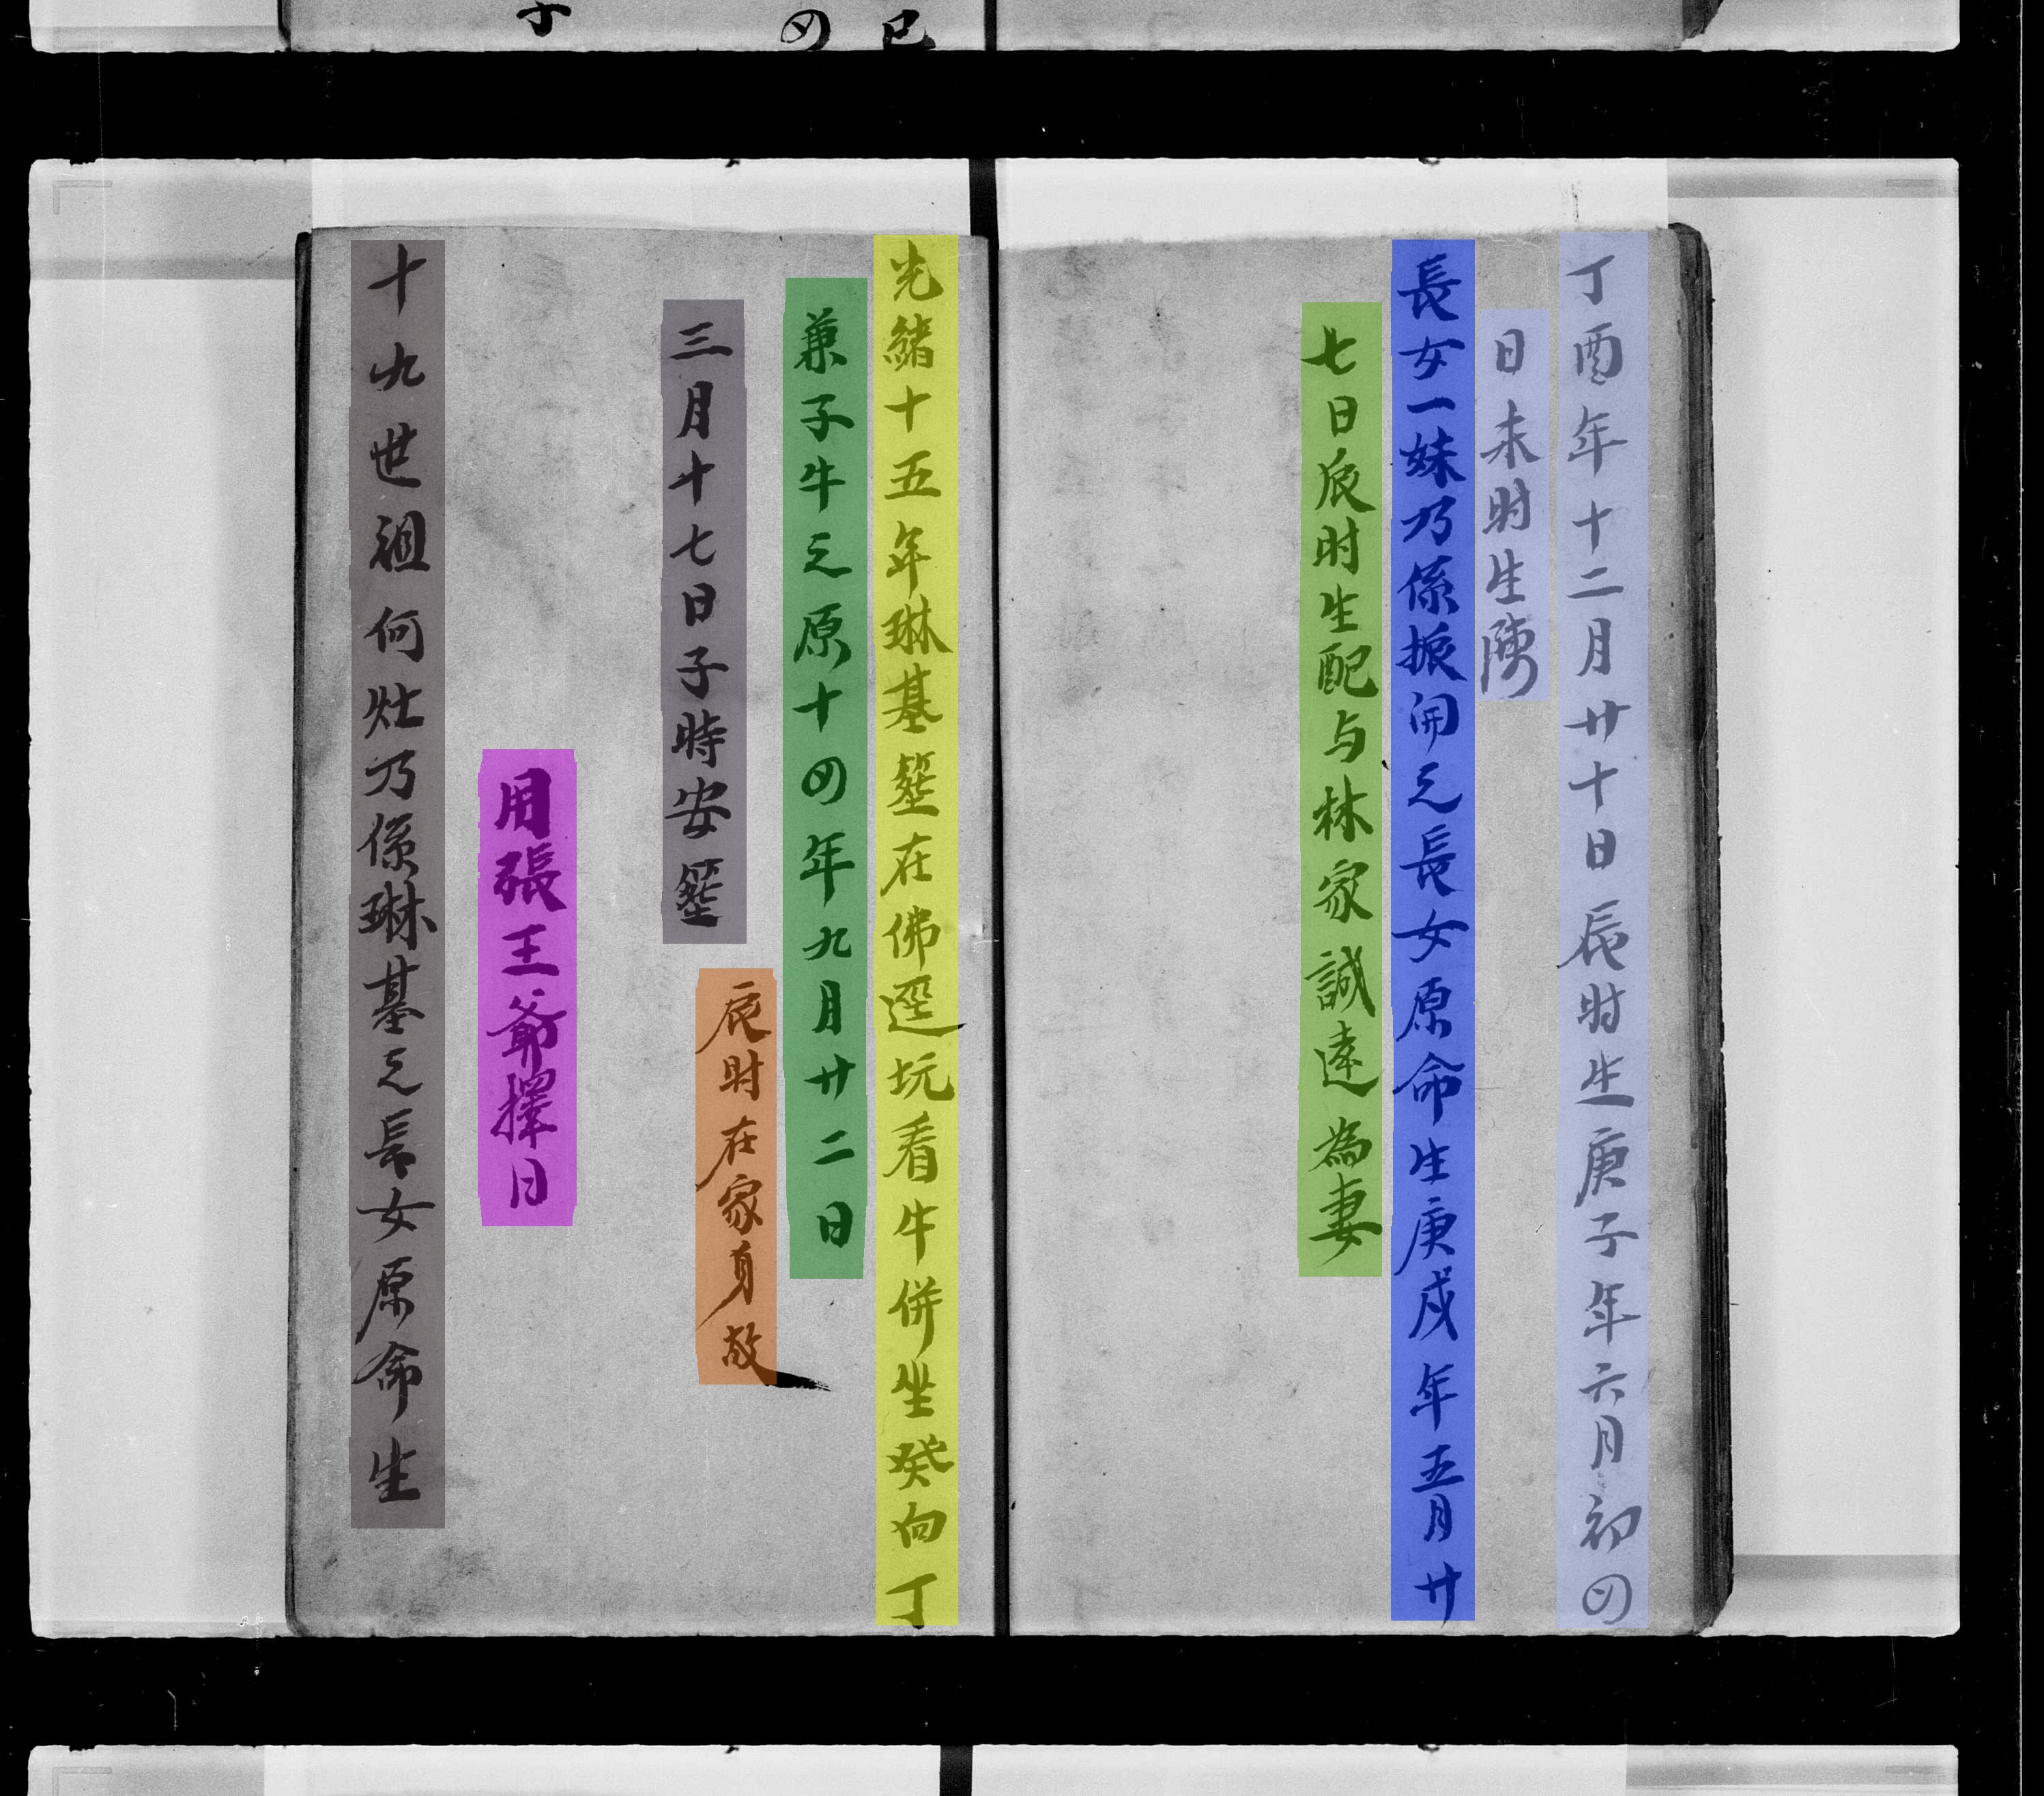 丁酉年十二月廿十日辰时生庚子年六月初四
日未时生
長女一妹乃係振開之長女原命生庚戍年五月廿
七日辰时生配与林家誠遠為妻
光緒十五年琳基塟在佛逕坑看牛併坐癸向丁
兼子牛之原十四年九月廿二日
辰时在家身故
三月十七日子時安塟
用張王爺擇日
十九世祖何灶乃係琳基之長女原命生